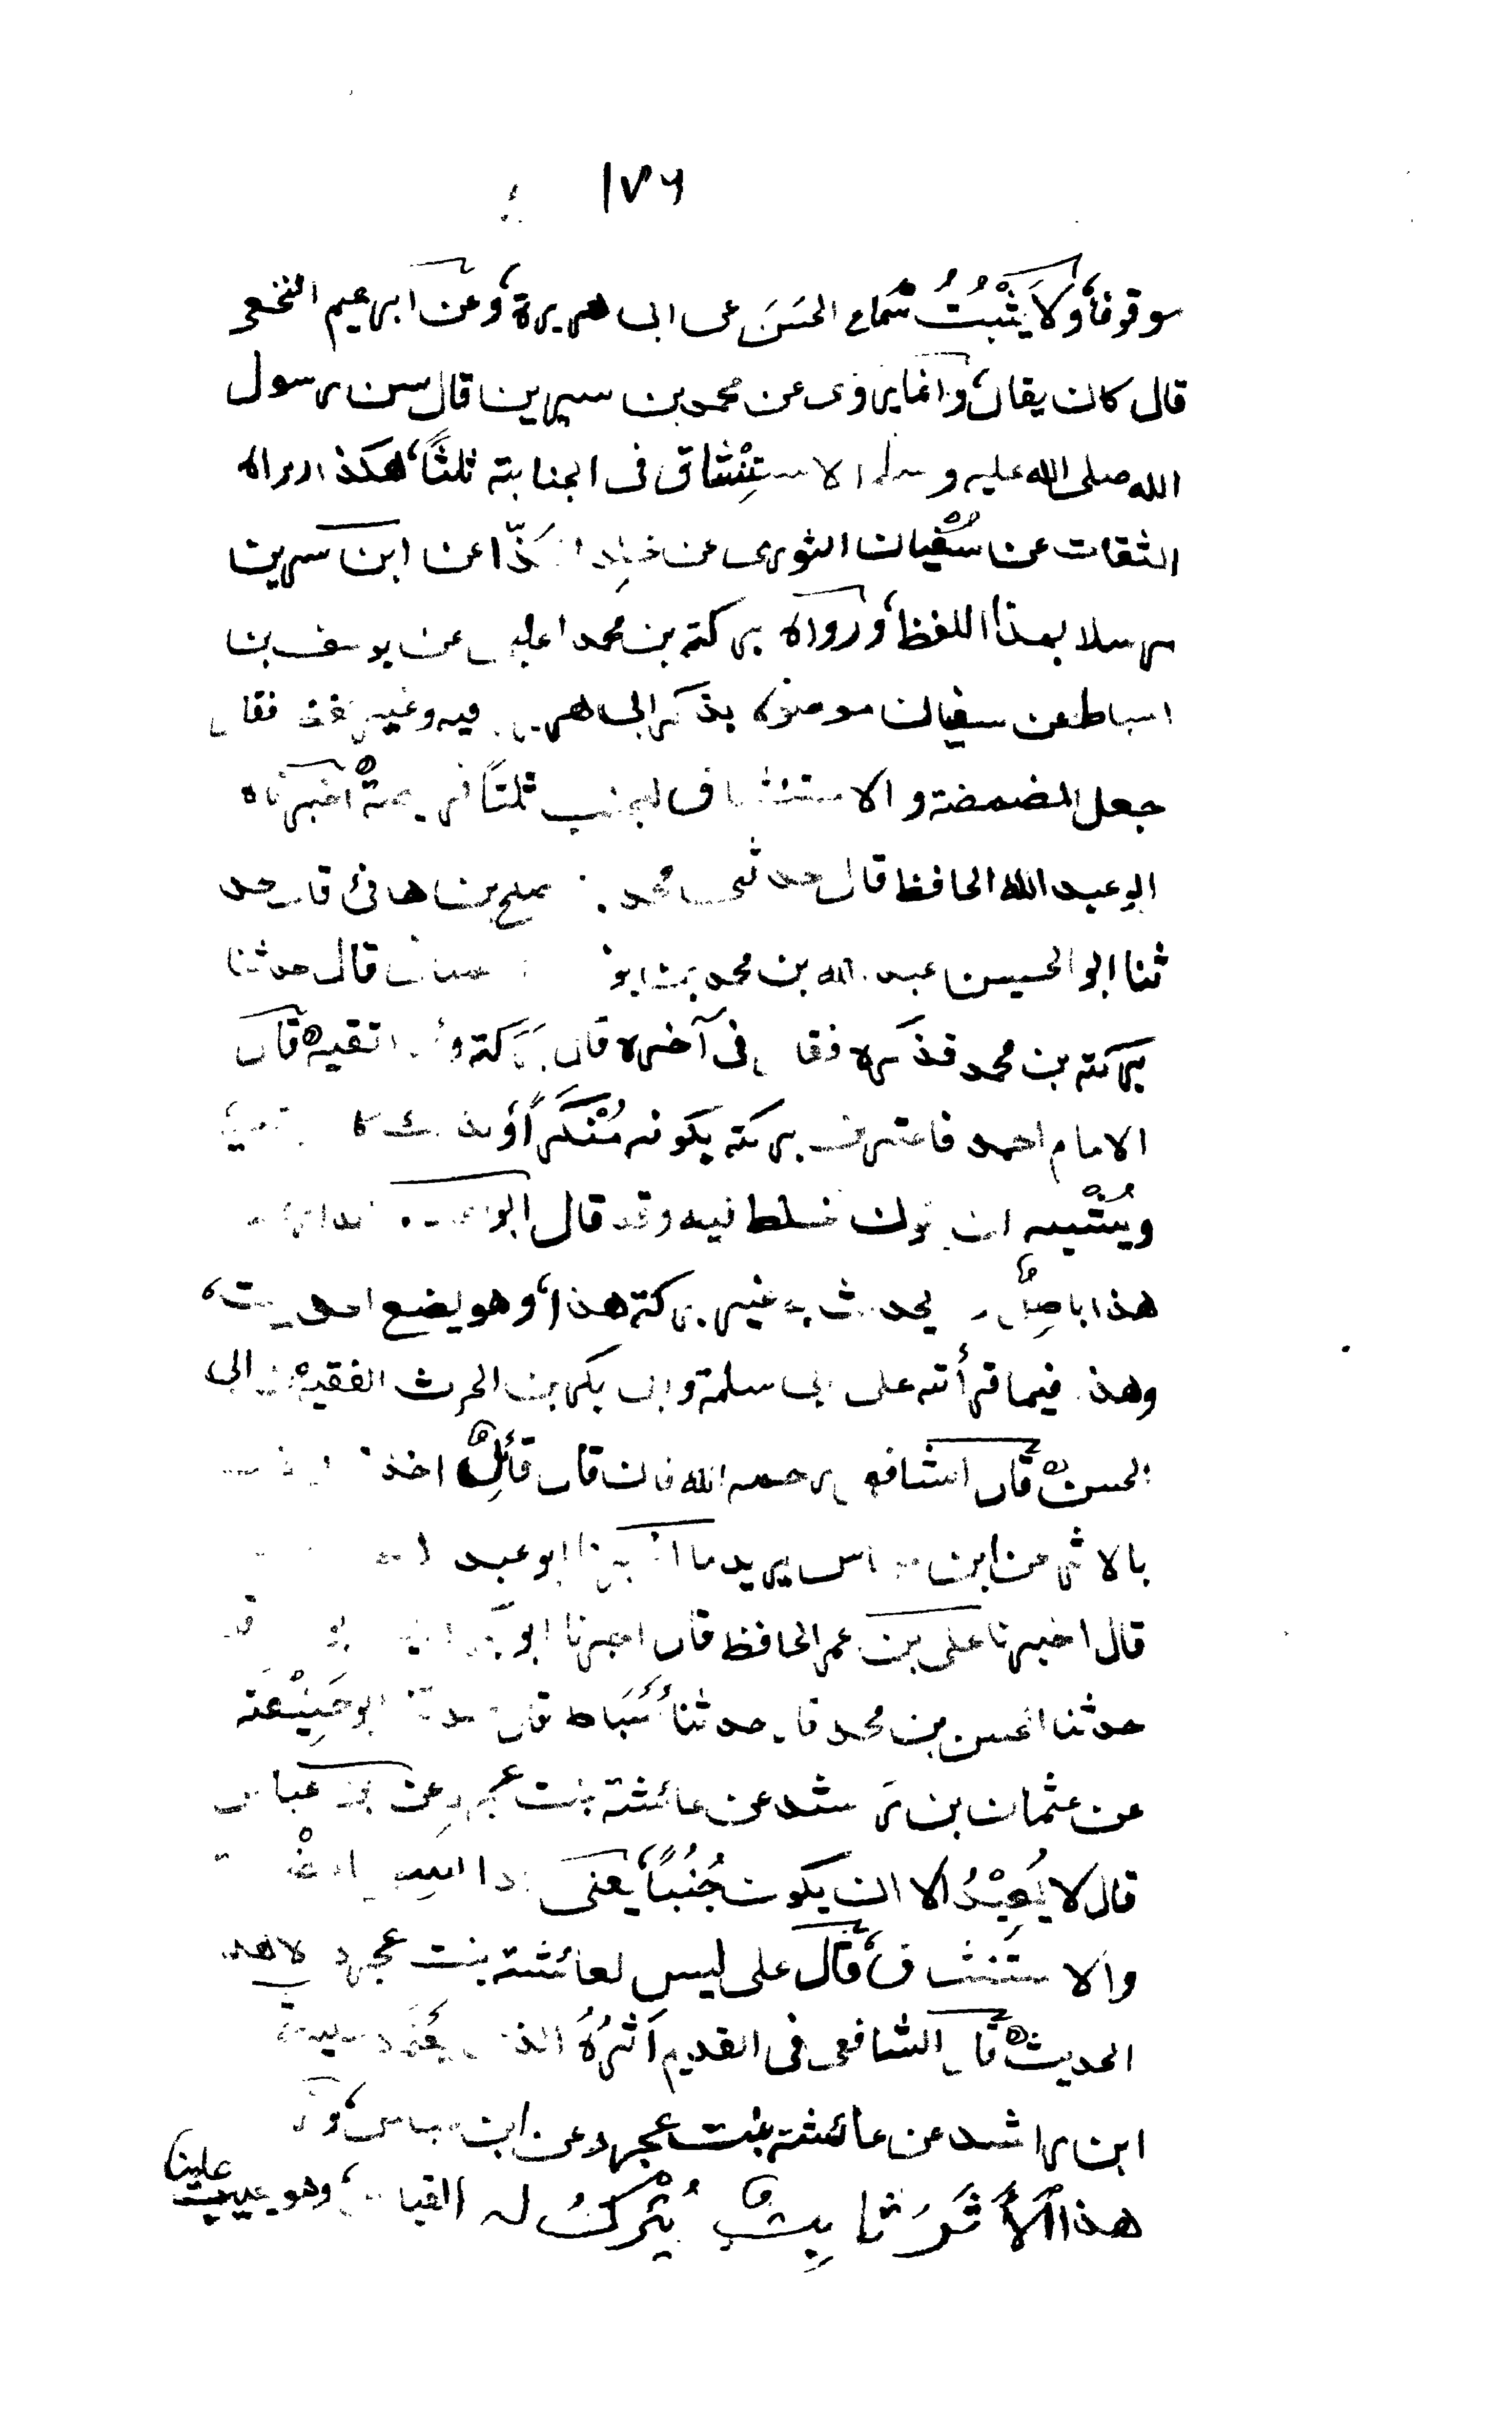 ١٧٦
موقوفاً، ولا يَثْبُتُ سَماع الحسَنَ عن ابى هريرة، وعن ابرهيم النخعى
قال كان يقال، وانما يروى عن محمد بن سيرين قال سن رسول
الله صلى الله عليه وسلم الاستِنْشاق فى الجنابة ثلثاً، هكذا رواه
الثقات عن سُفْيان الثورى عن خالد الحَذّا عن ابن سيرين
مرسلا بهذا اللفظ، ورواه بركة بن محمد الحلبى عن يوسف بن
اسباط عن سفيان موصولا بذكر ابى هريرة فيه وغير لفظه فقال
جعل المضمضة والاستنشاق للجنب ثلثاً فريضة اخبرناه
ابو عبد الله الحافظ قال حدثنى محمد بن صلح بن هانئ قال حد
ثنا ابو الحسين عبد الله بن محمد بن قال حدثنا
بركة بن محمد فذكره فقال فى آخره قال بركة وأنا اتقيه قال
الامام احمد فاعترف بركة بكونه مُنْكَراً ولذلك كان
ويُشْبِه ان يكون غلط فيه وقد قال ابو
هذا باطِلٌ لم يحدث به غير بركة هذا، وهو يضع الحديث،
وهذا فيما قرأته على ابى سلمة وابى بكر بن الحرث الفقيه عن ابى
الحسن قال الشافعى رحمه الله فان قال قائِلٌ اخذ
بالاثر عن ابن عباس يريد ما اخبرنا ابو عبد
قال اخبرنا على بن عمر الحافظ قال اخبرنا ابو بكر
حدثنا الحسن بن محمد قال حدثنا أَسْبَاط قال حدثنا ابو حَنِيْفَة
عن عثمان بن راشد عن عائشة بنت عجرد عن ابن عباس
قال لا يُعِيْدُ الا ان يكون جُنُباً، يعنى
والاستَنشاق، قال على ليس لعائشة بنت عجرد الا هذا
الحديث قال الشافعى فى القديم اَثَرُهُ الذى يعتمد
ابن راشد عن عائشة بنت عجرد عن ابن عباس، و
هذا الأَثَرَ ثَابِتٌ يُتْرَكُ له القياس، وهو يعيب علينا